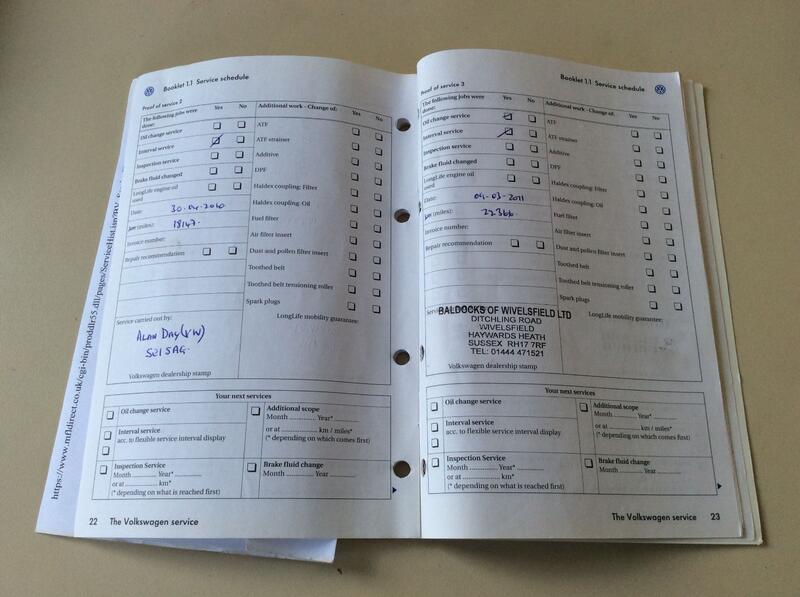 Booklet 1.1 Service schedule
Proof of service 2
The following jobs were done: Yes No
Oil change service
Interval service
Inspection service
Brake fluid changed
LongLife engine oil used
Date: 30-04-2010
km (miles): 18147.
Invoice number:
Repair recommendation
Additional work - Change of: Yes No
ATF
ATF strainer
Additive
DPF
Haldex coupling: Filter
Haldex coupling: Oil
Fuel filter
Air filter insert
Dust and pollen filter insert
Toothed belt
Toothed belt tensioning roller
Spark plugs
LongLife mobility guarantee:
Service carried out by:
ALAN DAY (VW)
Volkswagen dealership stamp
Your next services
Oil change service
Interval service
acc. to flexible service interval display
Inspection Service
Month Year*
or at km*
(* depending on what is reached first)
Additional scope
Month Year*
or at km / miles*
(* depending on which comes first)
Brake fluid change
Month Year
22 The Volkswagen service
https://www.mfldirect.co.uk/cgi-bin/proddlr55.dll/pages/ServiceHist
Booklet 1.1 Service schedule
Proof of service 3
The following jobs were done: Yes No
Oil change service
Interval service
Inspection service
Brake fluid changed
LongLife engine oil used
Date: 04-03-2011
km (miles): 22366.
Invoice number:
Repair recommendation
Additional work - Change of: Yes No
ATF
ATF strainer
Additive
DPF
Haldex coupling: Filter
Haldex coupling: Oil
Fuel filter
Air filter insert
Dust and pollen filter insert
Toothed belt
Toothed belt tensioning roller
Spark plugs
LongLife mobility guarantee:
BALDOCKS OF WIVELSFIELD LTD
DITCHLING ROAD
WIVELSFIELD
HAYWARDS HEATH
SUSSEX RH17 7RF
TEL: 01444 471521
Volkswagen dealership stamp
Your next services
Oil change service
Interval service
acc. to flexible service interval display
Inspection Service
Month Year*
or at km*
(* depending on what is reached first)
Additional scope
Month Year*
or at km / miles*
(* depending on which comes first)
Brake fluid change
Month Year
The Volkswagen service 23